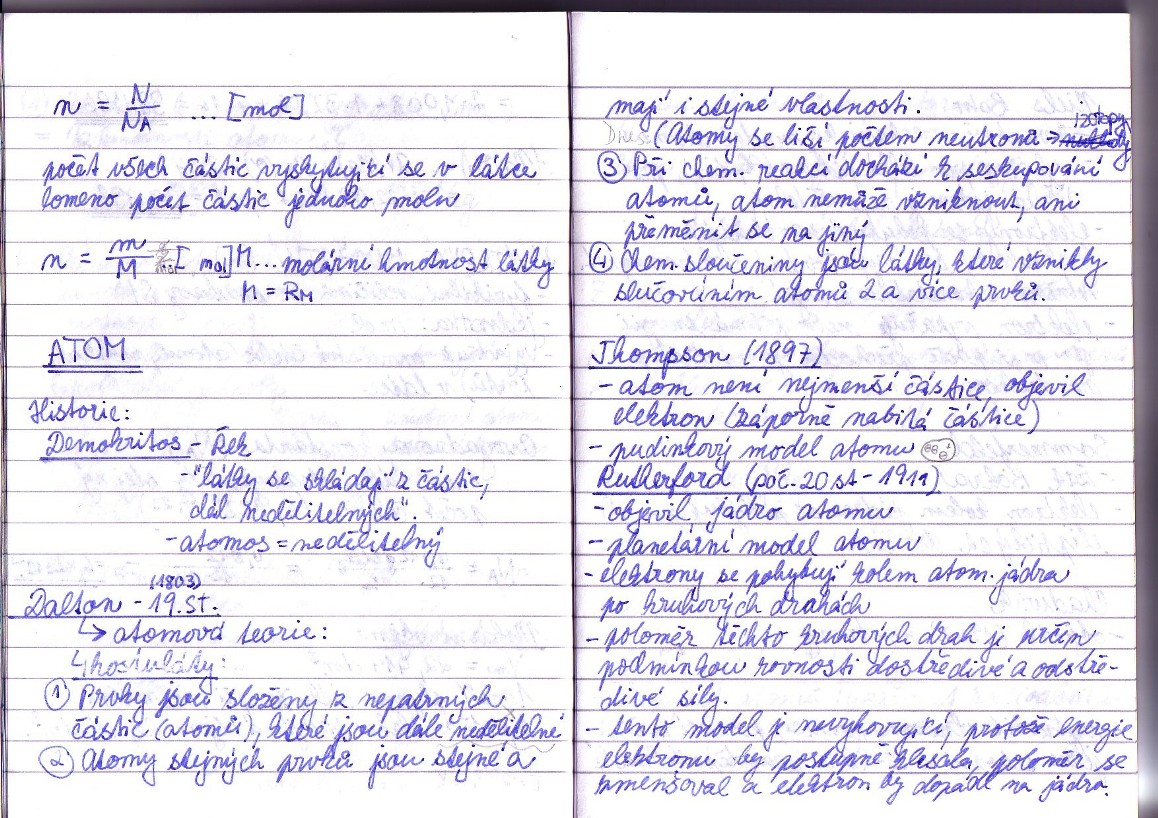 n = N/NA ... [mol]
počet všech částic vyskytující se v látce
lomeno počet částic jednoho molu
n = m/M [mol] M... molární hmotnost látky
M = RM
ATOM
Historie:
Demokritos - Řek
- "látky se skládají z částic,
dál nedělitelných".
- atomos = nedělitelný
(1803)
Dalton - 19. st.
↳ atomová teorie:
4 postuláty:
① Prvky jsou složeny z nepatrných
částic (atomů), které jsou dále nedělitelné
② Atomy stejných prvků jsou stejné a
mají i stejné vlastnosti.
izotopy
Dnes: (Atomy se liší počtem neutronů →
③ Při chem. reakci dochází k seskupování
atomů, atom nemůže vzniknout, ani
přeměnit se na jiný
④ Chem. sloučeniny jsou látky, které vznikly
slučováním atomů 2 a více prvků.
Thompson (1897)
- atom není nejmenší částice, objevil
elektron (záporně nabitá částice)
- pudinkový model atomu
Rutherford (poč. 20 st - 1911)
- objevil jádro atomu
- planetární model atomu
- elektrony se pohybují kolem atom. jádra
po kruhových drahách
- poloměr těchto kruhových drah je určen
podmínkou rovnosti dostředivé a odstře-
divé síly.
- tento model je nevyhovující, protože energie
elektronu by postupně klesala, poloměr se
zmenšoval a elektron by dopadl na jádro.